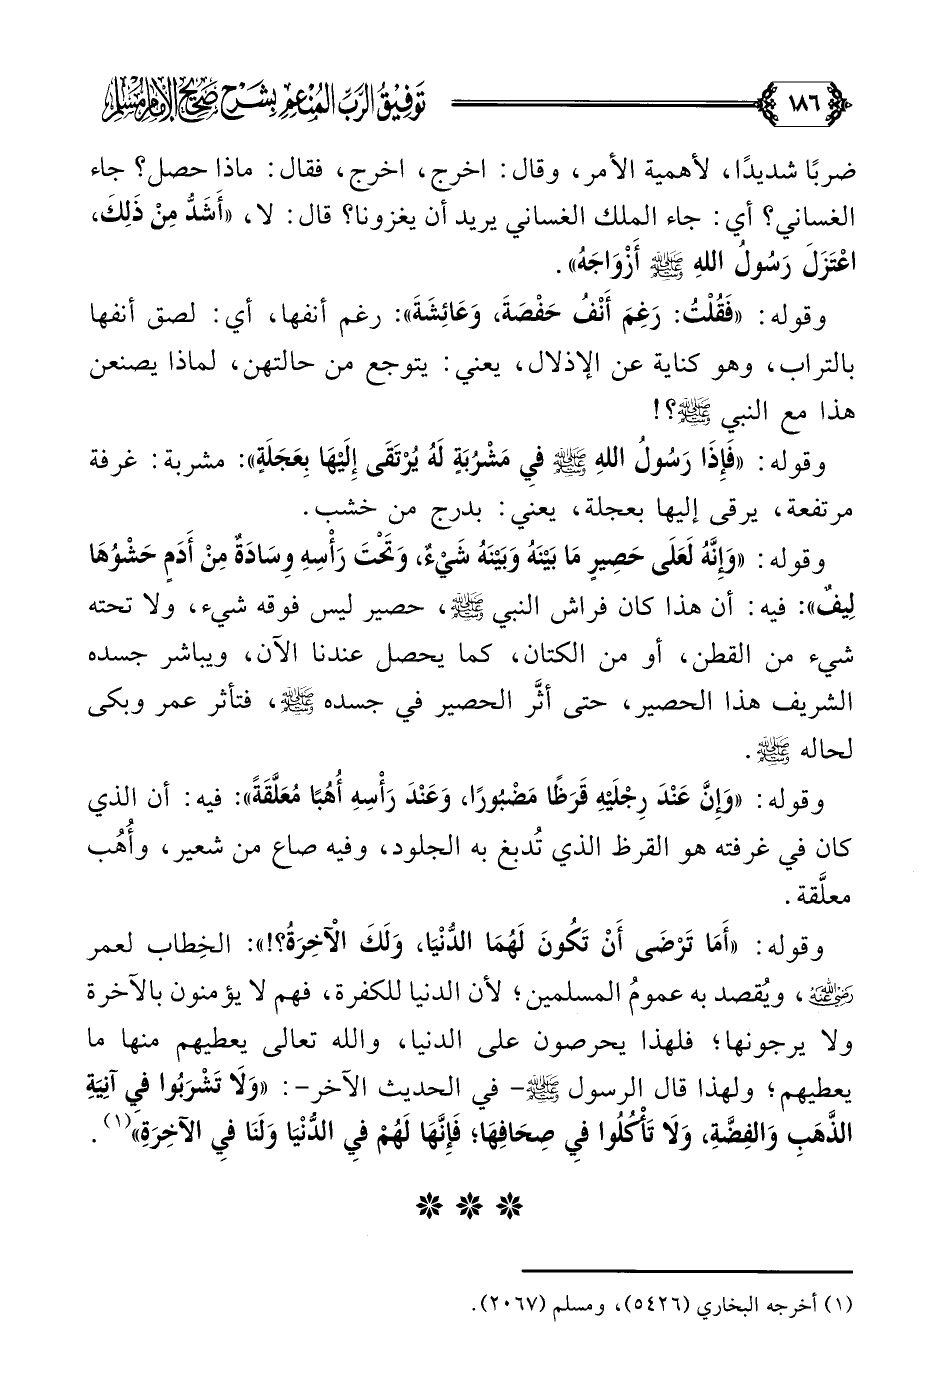 ١٨٦
توفيق الرب المنعم بشرح صحيح الإمام مسلم
ضربًا شديدًا، لأهمية الأمر، وقال: اخرج، اخرج، فقال: ماذا حصل؟ جاء
الغساني؟ أي: جاء الملك الغساني يريد أن يغزونا؟ قال: لا، «أَشَدُّ مِنْ ذَلِكَ،
اعْتَزَلَ رَسُولُ اللهِ ﷺ أَزْوَاجَهُ».
وقوله: «فَقُلْتُ: رَغِمَ أَنْفُ حَفْصَةَ، وَعَائِشَةَ»: رغم أنفها، أي: لصق أنفها
بالتراب، وهو كناية عن الإذلال، يعني: يتوجع من حالتهن، لماذا يصنعن
هذا مع النبي ﷺ؟!
وقوله: «فَإِذَا رَسُولُ اللهِ ﷺ فِي مَشْرُبَةٍ لَهُ يُرْتَقَى إِلَيْهَا بِعَجَلَةٍ»: مشربة: غرفة
مرتفعة، يرقى إليها بعجلة، يعني: بدرج من خشب.
وقوله: «وَإِنَّهُ لَعَلَى حَصِيرٍ مَا بَيْنَهُ وَبَيْنَهُ شَيْءٌ، وَتَحْتَ رَأْسِهِ وِسَادَةٌ مِنْ أَدَمٍ حَشْوُهَا
لِيفٌ»: فيه: أن هذا كان فراش النبي ﷺ، حصير ليس فوقه شيء، ولا تحته
شيء من القطن، أو من الكتان، كما يحصل عندنا الآن، ويباشر جسده
الشريف هذا الحصير، حتى أثَّر الحصير في جسده ﷺ، فتأثر عمر وبكى
لحاله ﷺ.
وقوله: «وَإِنَّ عَنْدَ رِجْلَيْهِ قَرَظًا مَضْبُورًا، وَعَنْدَ رَأْسِهِ أُهُبًا مُعَلَّقَةً»: فيه: أن الذي
كان في غرفته هو القرظ الذي تُدبغ به الجلود، وفيه صاع من شعير، وأُهُب
معلَّقة.
وقوله: «أَمَا تَرْضَى أَنْ تَكُونَ لَهُمَا الدُّنْيَا، وَلَكَ الْآخِرَةُ؟!»: الخِطاب لعمر
رضي الله عنه، ويُقصد به عمومُ المسلمين؛ لأن الدنيا للكفرة، فهم لا يؤمنون بالآخرة
ولا يرجونها؛ فلهذا يحرصون على الدنيا، والله تعالى يعطيهم منها ما
يعطيهم؛ ولهذا قال الرسول ﷺ- في الحديث الآخر-: «وَلَا تَشْرَبُوا فِي آنِيَةِ
الذَّهَبِ وَالفِضَّةِ، وَلَا تَأْكُلُوا فِي صِحَافِهَا؛ فَإِنَّهَا لَهُمْ فِي الدُّنْيَا وَلَنَا فِي الآخِرَةِ»(١).
(١) أخرجه البخاري (٥٤٢٦)، ومسلم (٢٠٦٧).